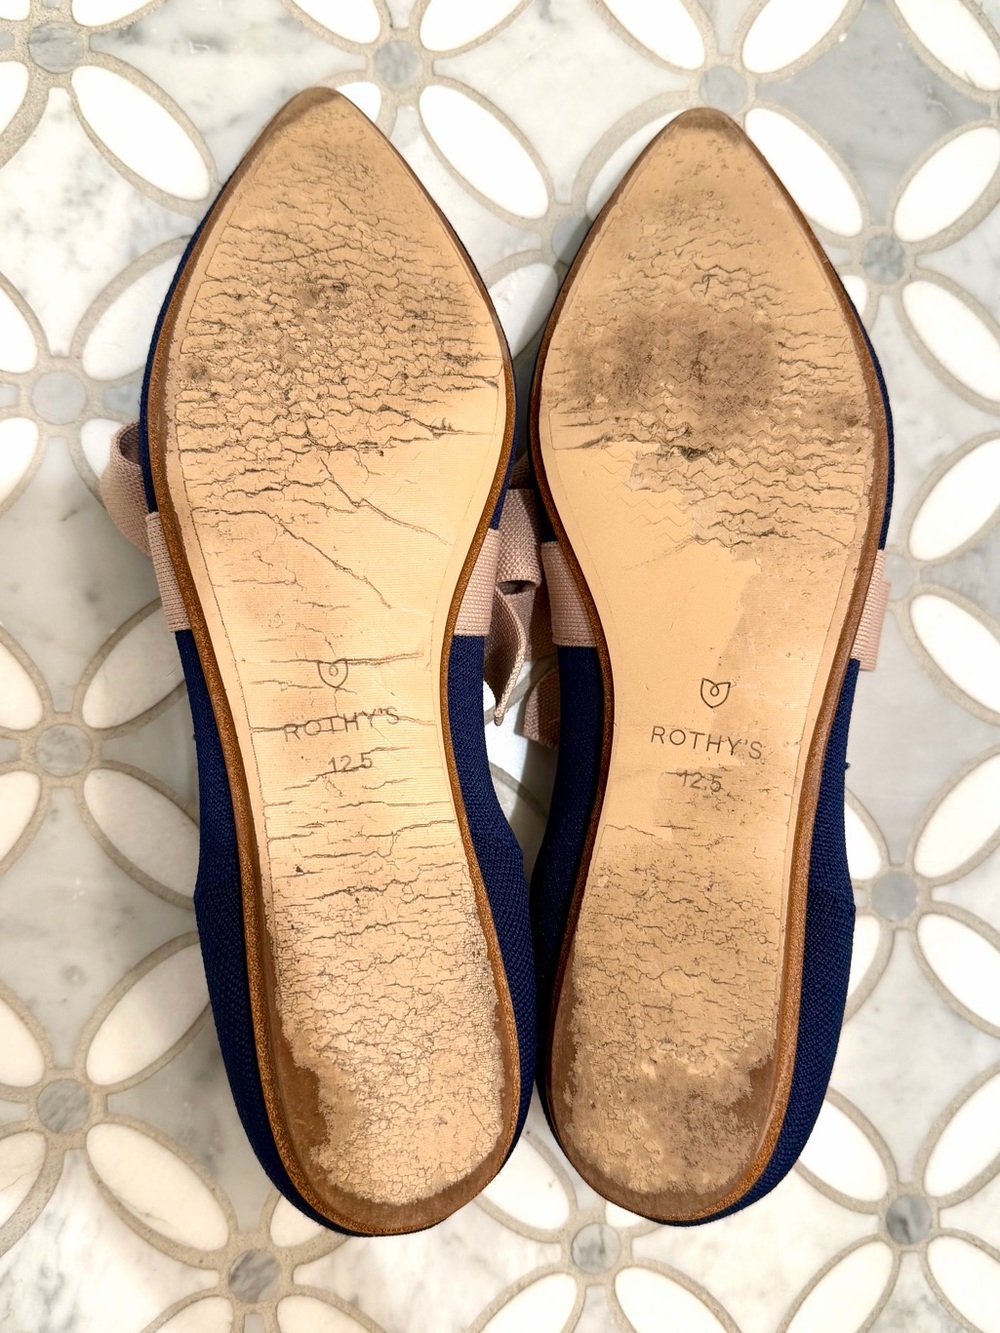 ROTHY'S
12.5
ROTHY'S
12.5